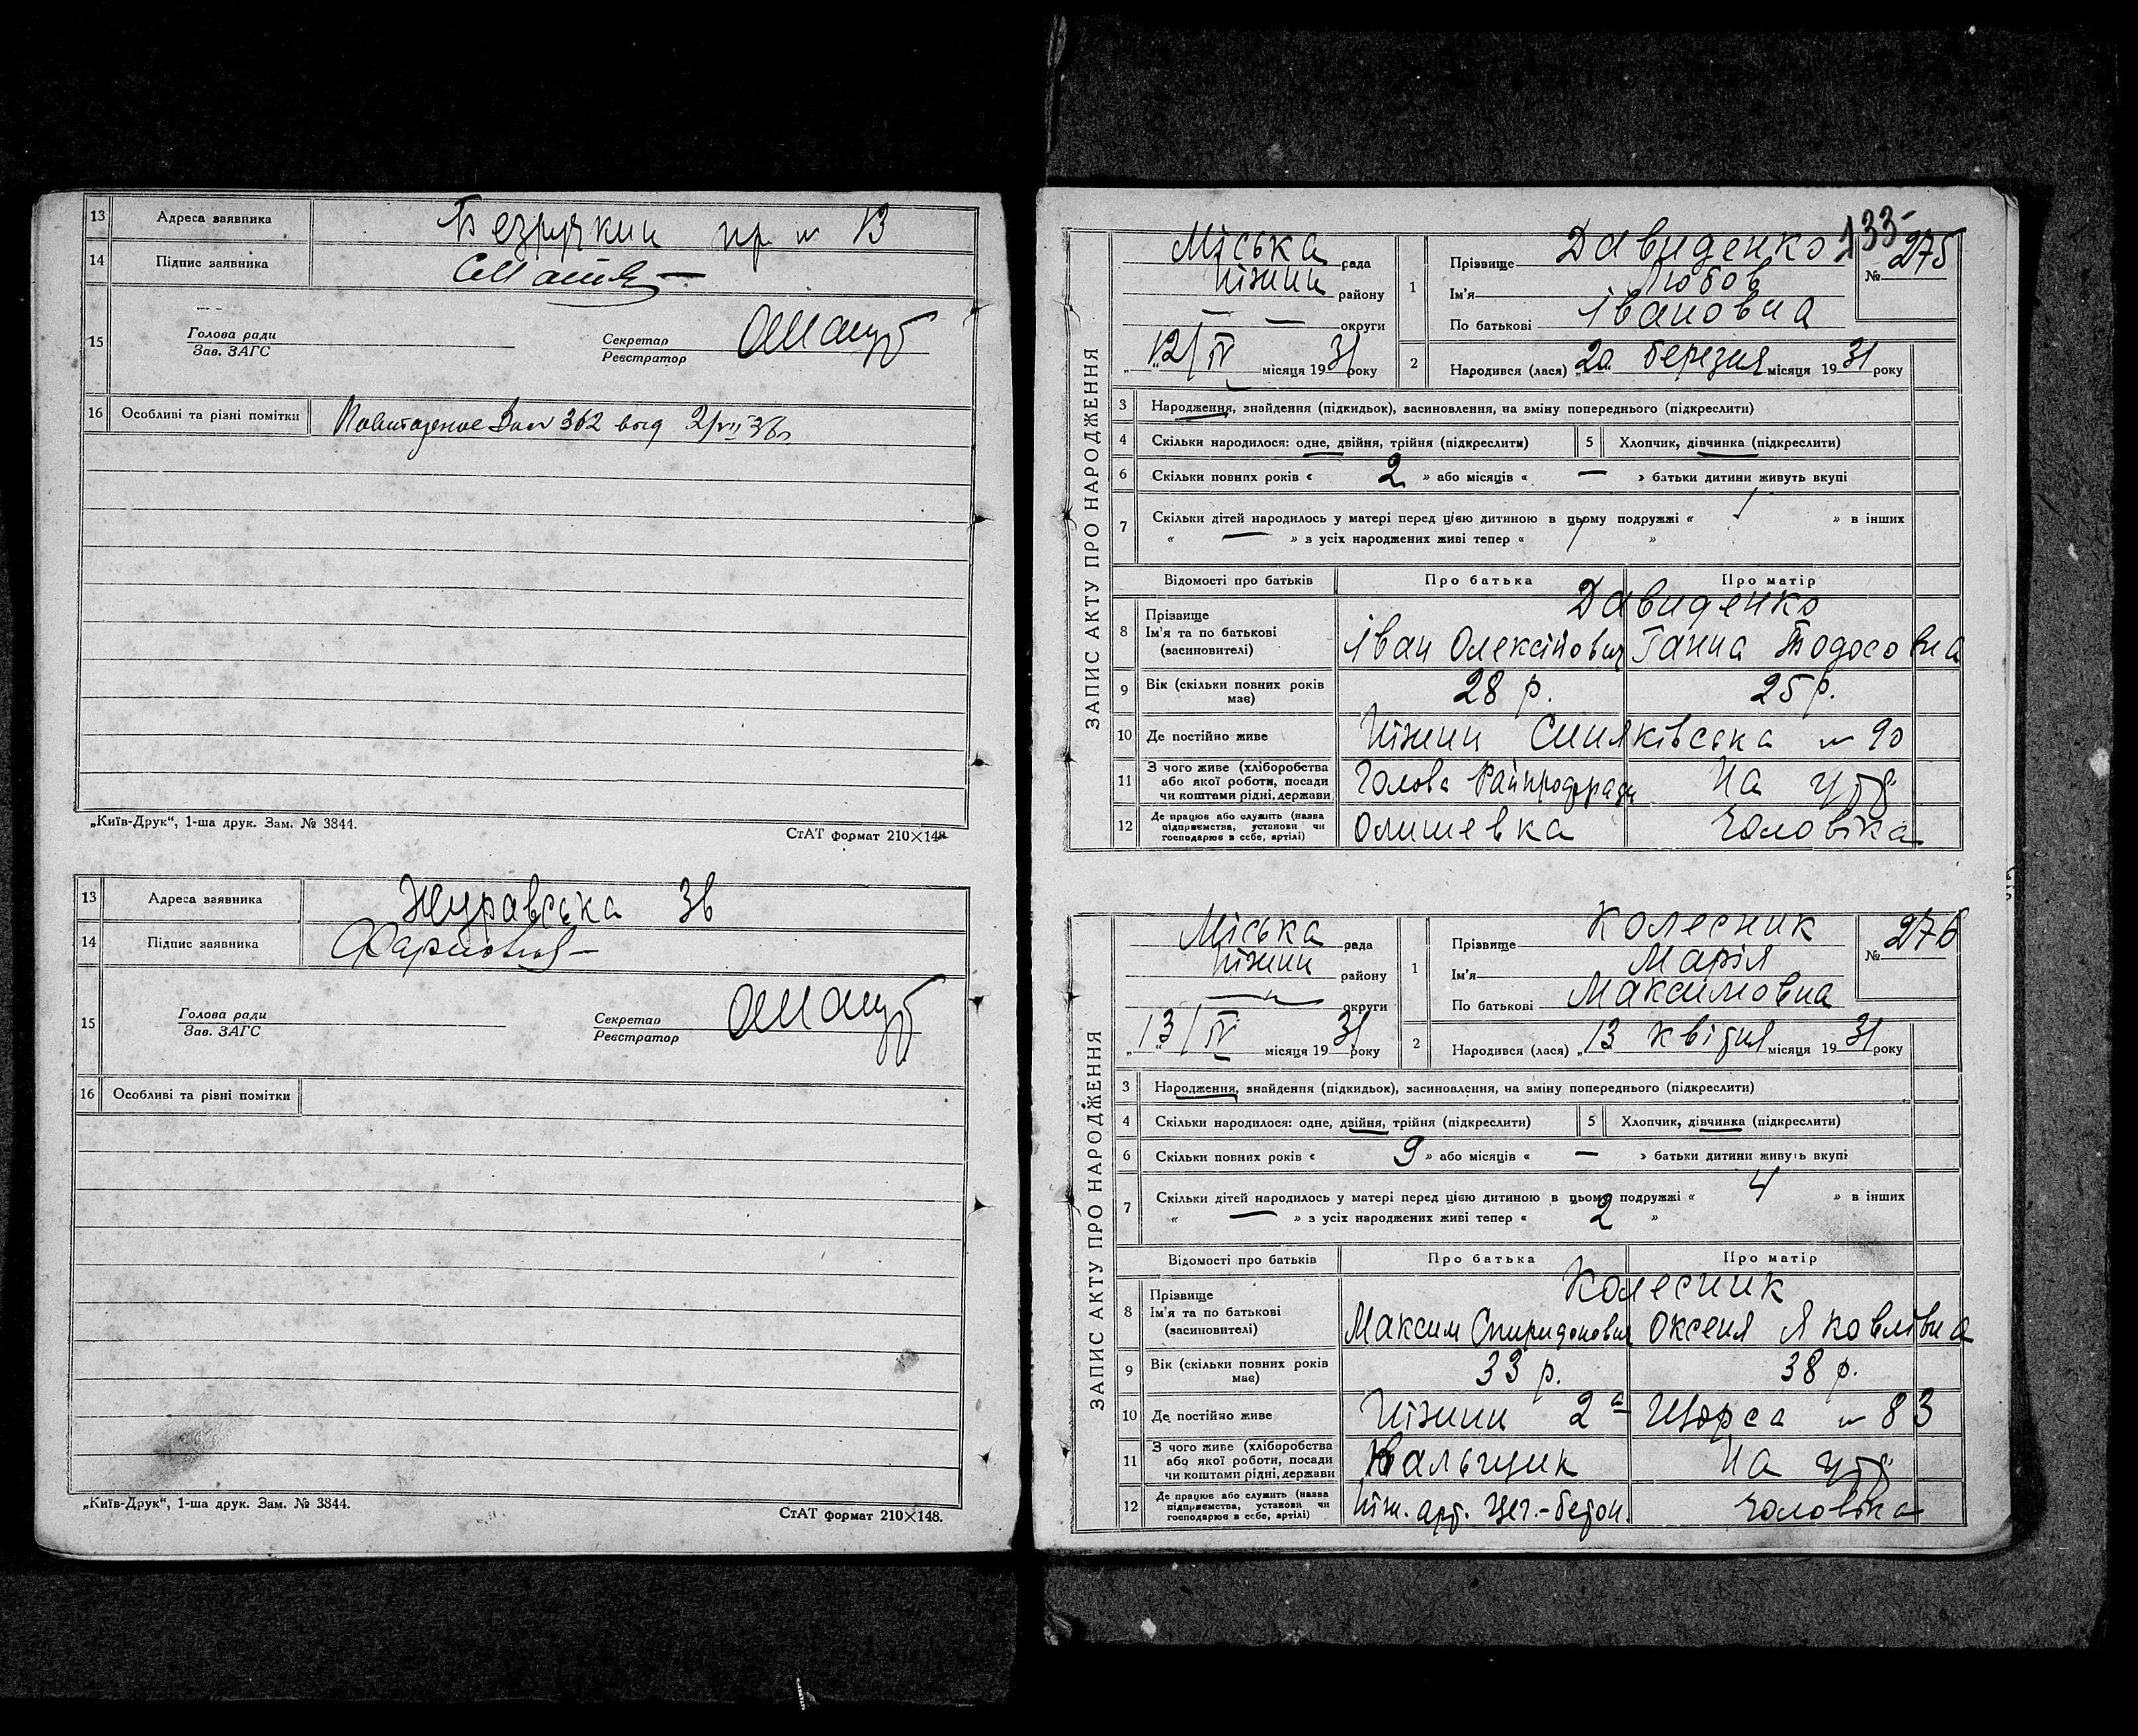 13 Адреса заявника Безручкин пр. № 13
14 Підпис заявника
15 Голова ради
Зав. ЗАГС
Секретар
Реєстратор
16 Особливі та різні помітки 362 2/VII
„Київ-Друк“, 1-ша друк. Зам. № 3844.
СтАТ формат 210×148
13 Адреса заявника Журавська 36
14 Підпис заявника
15 Голова ради
Зав. ЗАГС
Секретар
Реєстратор
16 Особливі та різні помітки
„Київ-Друк“, 1-ша друк. Зам. № 3844.
СтАТ формат 210×148.
133
ЗАПИС АКТУ ПРО НАРОДЖЕННЯ
Міська рада
Ніжин району
— — округи
„12/IV місяця 1931 року
1 Прізвище Давиденко
Ім'я Любов
По батькові Івановна
№ 275
2 Народився (лася) „20 березня місяця 1931 року
3 Народження, знайдення (підкидьок), засиновлення, на зміну попереднього (підкреслити)
4 Скільки народилося: одне, двійня, трійня (підкреслити) 5 Хлопчик, дівчинка (підкреслити)
6 Скільки повних років « 2 » або місяців « — » батьки дитини живуть вкупі
7 Скільки дітей народилось у матері перед цією дитиною в цьому подружжі « 1 » в інших
« — » з усіх народжених живі тепер « 1 »
Відомості про батьків Про батька Про матір
8 Прізвище Давиденко
Ім'я та по батькові Іван Олексійович Ганна Тодосовна
(засиновителі)
9 Вік (скільки повних років має) 28 р. 25 р.
10 Де постійно живе Ніжин Синяківська № 90
11 З чого живе (хліборобства або якої роботи, посади чи коштами рідні, держави Голова На утр.
12 Де працює або служить (назва підприємства, установи чи господарює в себе, артілі) Олишевка чоловіка
ЗАПИС АКТУ ПРО НАРОДЖЕННЯ
Міська рада
Ніжин району
— округи
„13/IV місяця 1931 року
1 Прізвище Колесник
Ім'я Марія
По батькові Максимовна
№ 276
2 Народився (лася) „13 квітня місяця 1931 року
3 Народження, знайдення (підкидьок), засиновлення, на зміну попереднього (підкреслити)
4 Скільки народилося: одне, двійня, трійня (підкреслити) 5 Хлопчик, дівчинка (підкреслити)
6 Скільки повних років « 9 » або місяців « — » батьки дитини живуть вкупі
7 Скільки дітей народилось у матері перед цією дитиною в цьому подружжі « 4 » в інших
« — » з усіх народжених живі тепер « 2 »
Відомості про батьків Про батька Про матір
8 Прізвище Колесник
Ім'я та по батькові Максим Спиридонович Оксеня Яковлівна
(засиновителі)
9 Вік (скільки повних років має) 33 р. 38 р.
10 Де постійно живе Ніжин 2а Щорса № 83
11 З чого живе (хліборобства або якої роботи, посади чи коштами рідні, держави На утр.
12 Де працює або служить (назва підприємства, установи чи господарює в себе, артілі) Ніж. арт. Цег.-бетон. чоловіка